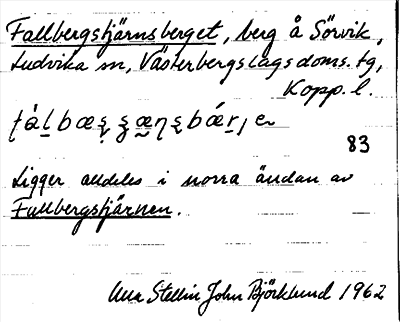 Fallbergstjärnsberget, berg å Sörvik,
Ludvika sn, Västerbergslags doms. tg,
Kopp. l.
83
Ligger alldeles i norra ändan av
Fallbergstjärnen.
Ulla Stellin John Björklund 1962